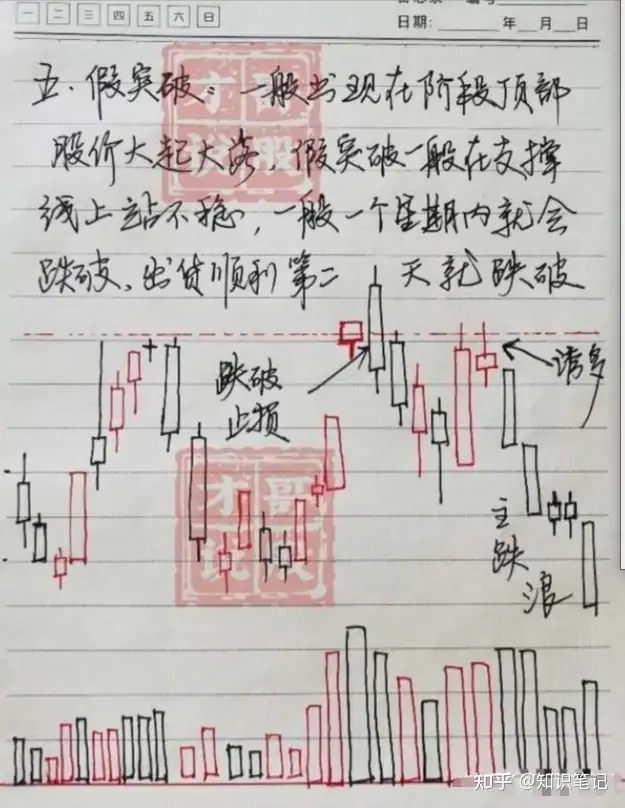 一 二 三 四 五 六 日
日期: 年 月 日
五.假突破:一般出现在阶段顶部
股价大起大落,假突破一般在支撑
线上站不稳,一般一个星期内就会
跌破、出货顺利第二 天就跌破
跌破
止损
诱多
主
跌
浪
才哥
说股
才哥
说股
知乎 @知识笔记